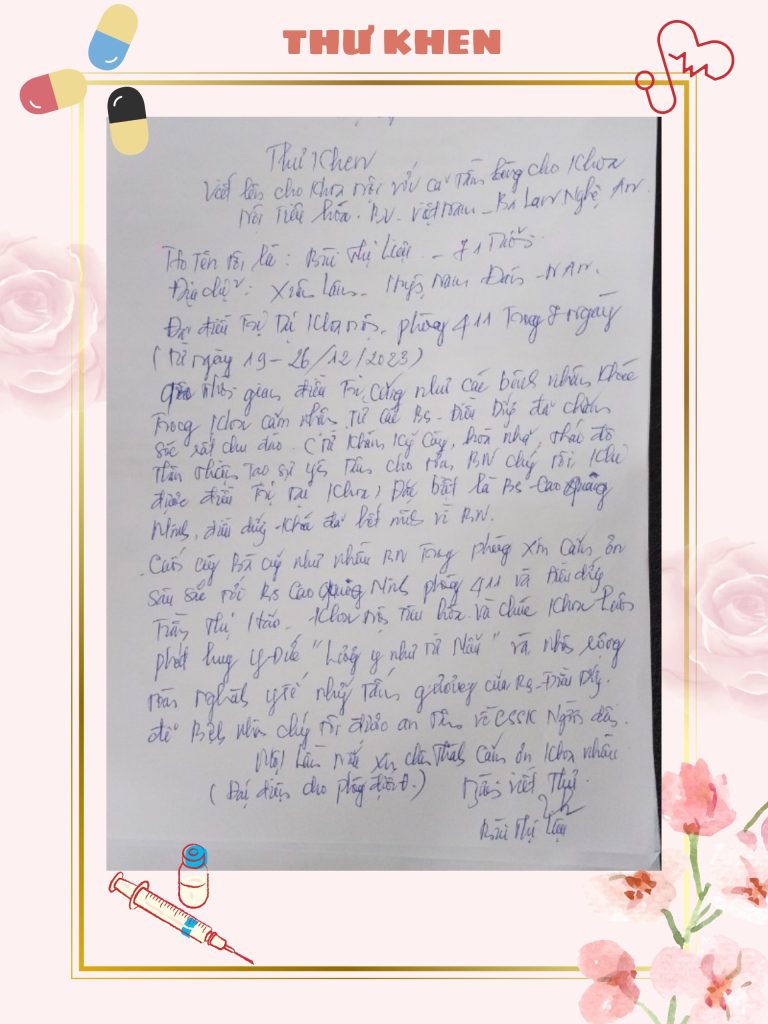 THƯ KHEN
Thư Khen
Viết lên cho Khoa Nội với cả Tấm lòng cho Khoa
Nội Tiêu hóa. BV. Việt Nam - Ba Lan Nghệ An.
Họ Tên tôi là: Bùi Thị Liệu - 71 Tuổi
Địa chỉ: Xuân Lâm - Huyện Nam Đàn - N.AN.
Đã điều Trị Tại Khoa Nội, phòng 411 Trong 8 ngày
(Từ ngày 19 - 26/12/2023)
Qua Thời gian điều Trị, cũng như các bệnh nhân Khác
Trong Khoa cảm nhận Từ các Bs - Điều Dưỡng đã chăm
sóc rất chu đáo. (Từ Khám Kỹ càng, hòa nhã, Thái độ
Thân Thiện, Tạo sự yên Tâm cho BN chúng tôi Khi
được điều Trị Tại Khoa) Đặc biệt là Bs Cao Quảng
Ninh, điều dưỡng Khoa đã hết mình vì BN.
Cuối cùng Bà cũng như nhiều BN Trong phòng xin Cảm ơn
sâu sắc tới Bs Cao Quảng Ninh phòng 411 và điều dưỡng
Trần Thị Hảo. Khoa nội Tiêu hóa. và chúc Khoa luôn
phát huy Y Đức "Lương y như từ Mẫu" và nhân rộng
toàn nghành y tế những Tấm gương của Bs - Điều Dưỡng.
để Bệnh nhân chúng tôi được an Tâm về CSSK Người dân.
Một lần nữa xin chân Thành Cảm ơn Khoa nhiều
(Đại diện cho phòng điều Trị.) Người viết Thư.
Bùi Thị Liệu